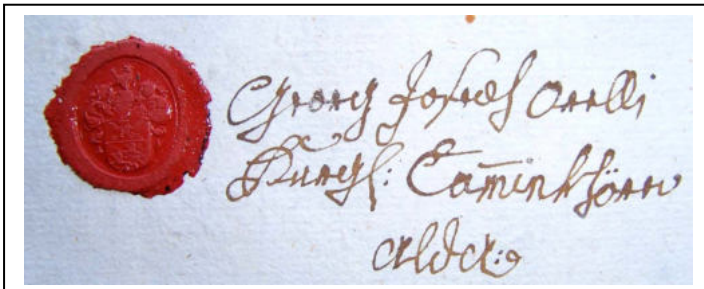 Georg Joseph Orelli
Burgl: Caminkhörer
alda: